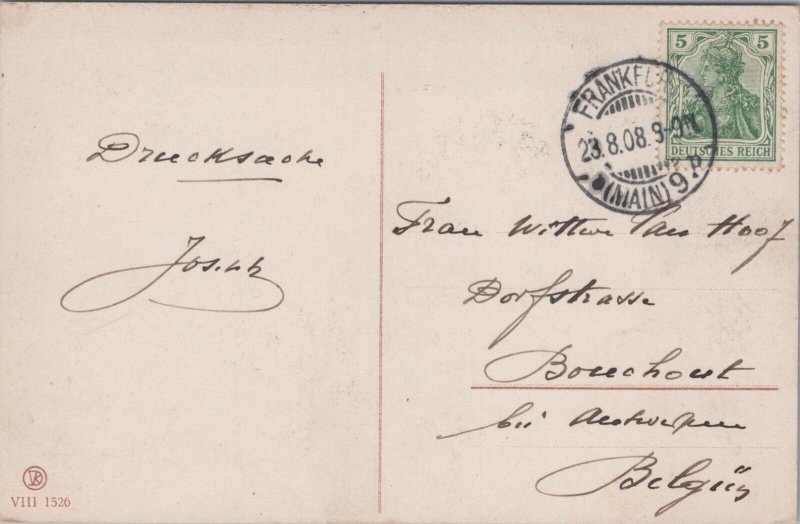 Drucksache
Joseph
VK
VIII 1526
5 5
DEUTSCHES REICH
FRANKFURT
23.8.08. 9-10N.
(MAIN) 9 P
Frau Wittwe Van Hoof
Dorfstrasse
Bouchout
bei Antwerpen
Belgien